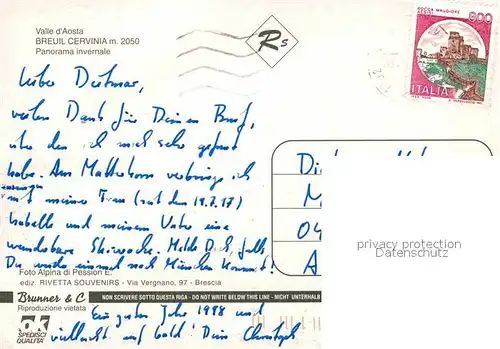 Valle d'Aosta
BREUIL CERVINIA m. 2050
Panorama invernale
Rs
ROCCA MAGGIORE
ASSISI
800
ITALIA
Lieber Dietmar,
vielen Dank für Deinen Brief,
über den ich mich sehr gefreut
habe. Am Matterhorn verbringe ich
mit meiner Frau (seit dem 19.7.97)
Isabelle und meinem Vater eine
wunderbare Skiwoche. Melde Dich, falls
Du wieder einmal nach München kommst!
Ein gutes Jahr 1998 und
vielleicht auf bald! Dein Christoph
Di
M
04
A
privacy protection
Datenschutz
Foto Alpina di Pession E.
ediz. RIVETTA SOUVENIRS - Via Vergnano, 97 - Brescia
Brunner & C
NON SCRIVERE SOTTO QUESTA RIGA - DO NOT WRITE BELOW THIS LINE - NICHT UNTERHALB
Riproduzione vietata
OK
SPEDISCI
QUALITÀ